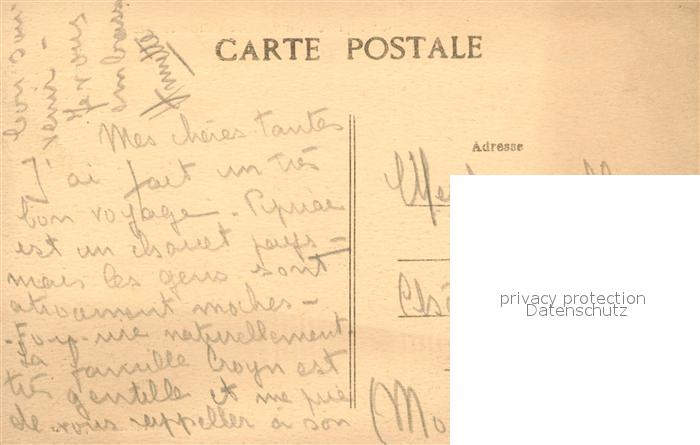 CARTE POSTALE
bon sou
venir -
Je vous
embrasse
Mes chères tantes
J'ai fait un très
bon voyage -
est un chouet pays -
mais les gens sont
moches -
naturellement.
La famille Croyn est
très gentille et me prie
de vous rappeller à son
Adresse
(Mo
privacy protection
Datenschutz